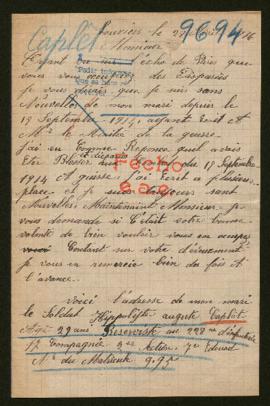 Caplet
9694
Louviers le 2
Monsieur
l'écho de Paris que
vous vous occupez des Disparus
je vous dirais que je suis sans
Nouvelles de mon mari depuis le
19 Septembre 1914, ayant écrit à
Mr le Ministre de la guerre
j'ai eu comme Réponse quel avais
Eté Blessé et disparu du 17 Septembre
1914 A j'ai écrit a plusieurs
place et je suis toujours sans
Nouvelles Maintenant Monsieur je
vous demande si C'était votre bonne
volonté de bien vouloir vous en occuper
Comptant sur votre dévouement
je vous en remercie bien des fois à
l'avance.
Fecho
voici l'adresse de mon mari
le Soldat Hippolyte auguste Caplet
Agé 29 ans Réserviste au 228me d'infanterie
17 Compagnie
No du Matricule